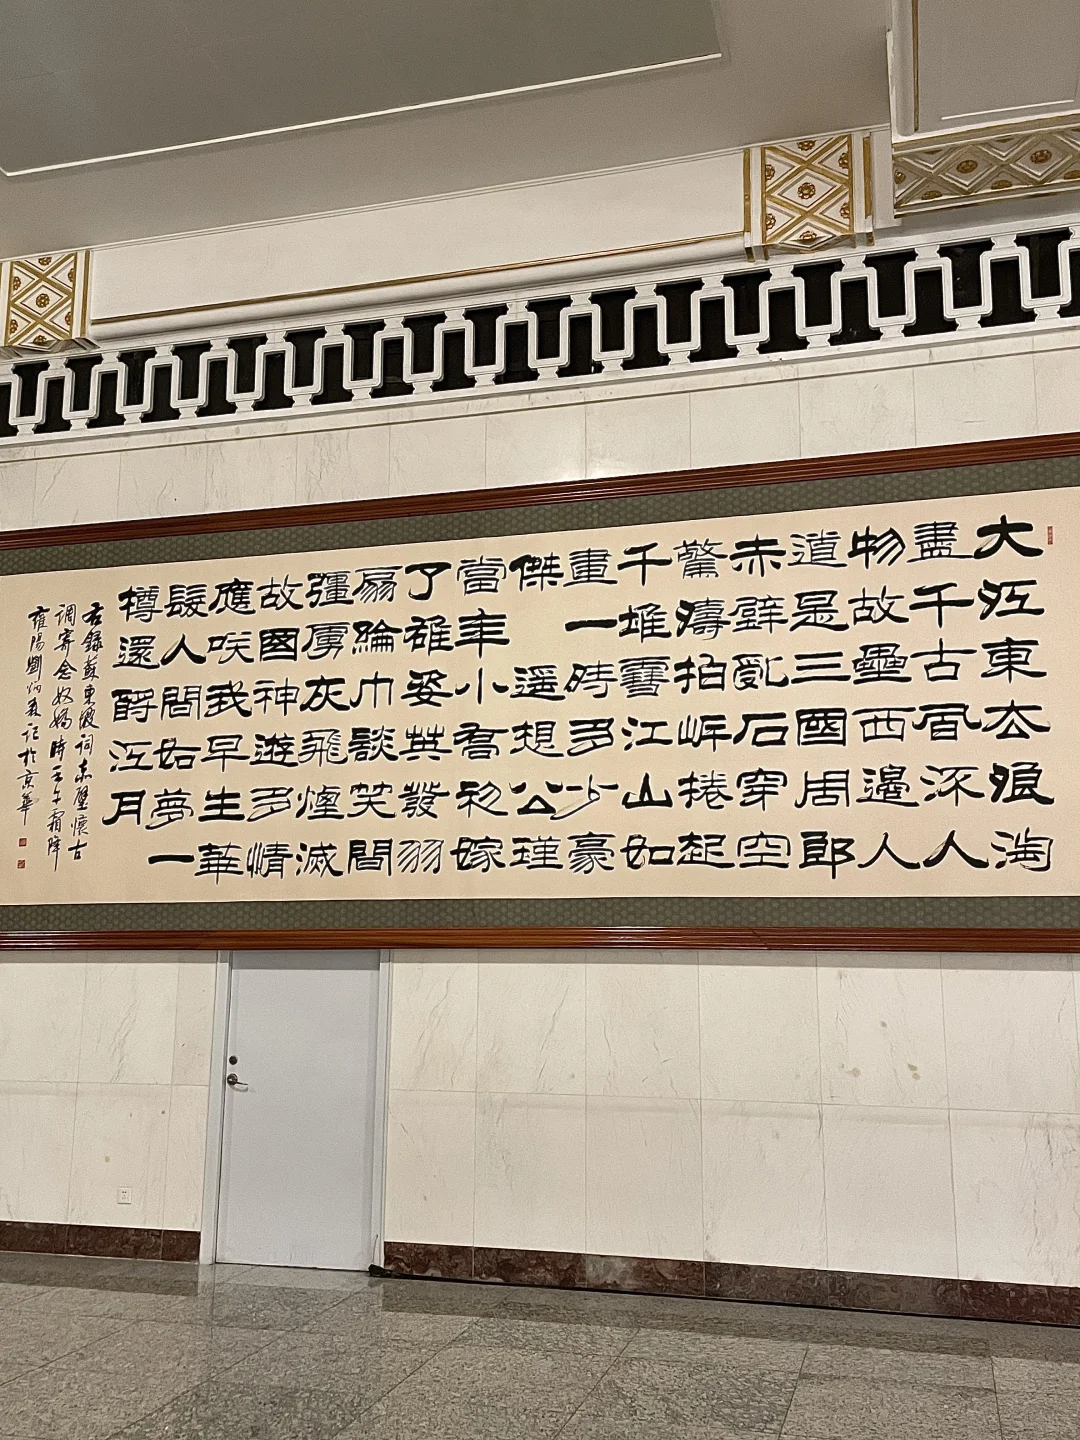 大江東去浪淘
盡千古風流人
物故壘西邊人
道是三國周郎
赤壁亂石穿空
驚濤拍岸捲起
千堆雪江山如
畫一時多少豪
傑 遙想公瑾
當年小喬初嫁
了雄姿英發羽
扇綸巾談笑間
彊虜灰飛煙滅
故國神遊多情
應咲我早生華
髮人間如夢一
樽還酹江月
右錄蘇東坡詞赤壁懷古
调寄念奴嬌時壬午霜降
雍陽劉炳森记於京華